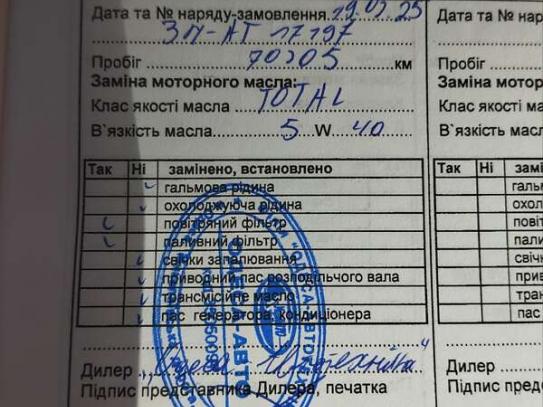 Дата та № наряду-замовлення 19.07.25
ЗМ-АТ 17197
Пробіг 70205 км
Заміна моторного масла:
Клас якості масла TOTAL
В`язкість масла 5 W 40
Так Ні замінено, встановлено
гальмова рідина
охолоджуюча рідина
повітряний фільтр
паливний фільтр
свічки запалювання
приводний пас розподільчого вала
трансмісійне масло
пас генератора, кондиціонера
Дилер
Підпис представника Дилера, печатка
Дата та № нар
Пробіг
Заміна мотор
Клас якості ма
В`язкість масл
Так Ні замі
гальм
охол
повіт
пали
свічк
прив
тран
пас
Дилер
Підпис пред